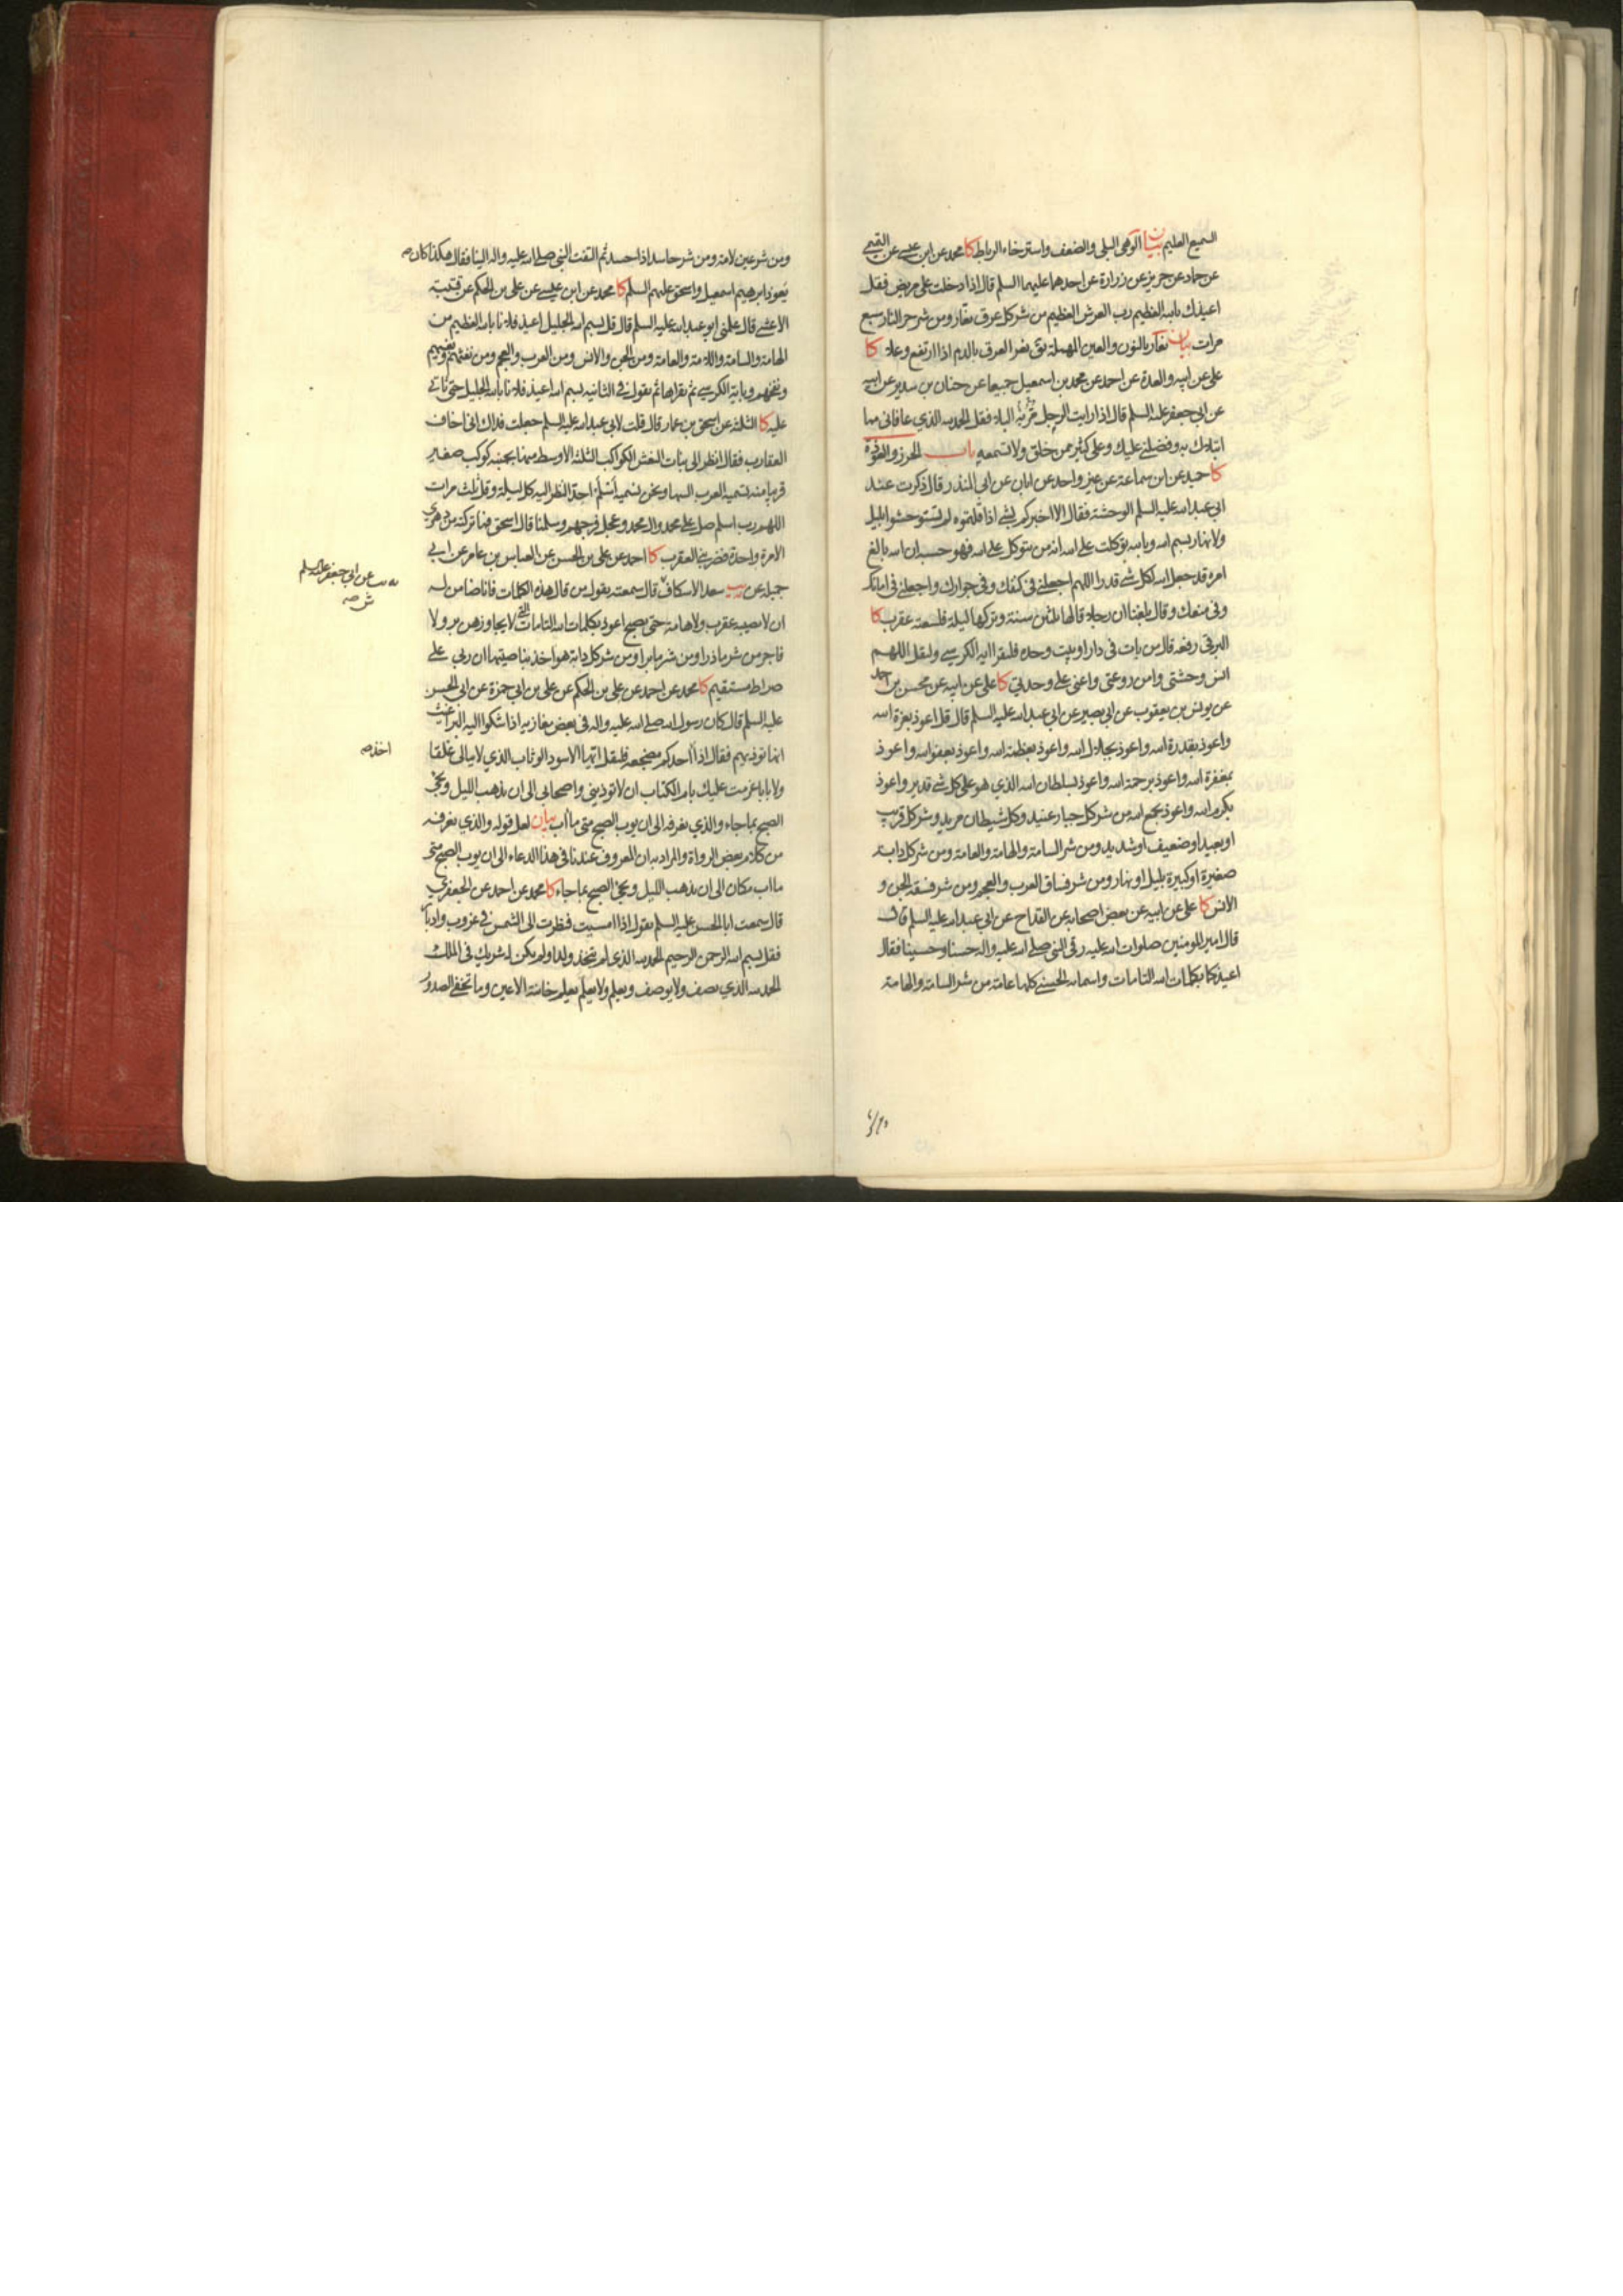 السميع العليم بيان الوهى البلى والضعف واسترخاء الرباط كا محمد عن ابن عيسى عن التميمي
عن حماد عن حريز عن زرارة عن احدهما عليهما السلم قال اذا دخلت على مريض فقل
اعيذك بالله العظيم رب العرش العظيم من شر كل عرق نعار ومن شر حر النار سبع
مرات بيان نعار بالنون والعين المهملة يق نعر العرق بالدم اذا ارتفع وعلا كا
على عن ابيه والعدة عن احمد عن محمد بن اسمعيل جميعا عن حنان بن سدير عن ابيه
عن ابي جعفر عليه السلم قال اذا رايت الرجل مر به البلاء فقل الحمد لله الذي عافاني مما
ابتلاك به وفضلني عليك وعلى كثير ممن خلق ولا تسمعه باب الحرز والعوذة
كا حميد عن ابن سماعة عن غير واحد عن ابان عن ابي المنذر قال ذكرت عند
ابي عبد الله عليه السلم الوحشة فقال الا اخبركم بشي اذا قلتموه لم تستوحشوا بليل
ولا نهار بسم الله وبالله توكلت على الله انه من يتوكل على الله فهو حسبه ان الله بالغ
امره قد جعل الله لكل شي قدرا اللهم اجعلني في كنفك وفي جوارك واجعلني في امانك
وفي منعك وقال بلغنا ان رجلا قالها ثلثين سنة وتركها ليلة فلسعته عقرب كا
البرقي رفعه قال من بات في دار او بيت وحده فليقرا اية الكرسي وليقل اللهم
انس وحشتي وامن روعتي واعني على وحدتي كا على عن ابيه عن محسن بن احمد
عن يونس بن يعقوب عن ابي بصير عن ابي عبد الله عليه السلم قال قل اعوذ بعزة الله
واعوذ بقدرة الله واعوذ بجلال الله واعوذ بعظمة الله واعوذ بعفو الله واعوذ
بمغفرة الله واعوذ برحمة الله واعوذ بسلطان الله الذي هو على كل شي قدير واعوذ
بكرم الله واعوذ بجمع الله من شر كل جبار عنيد وكل شيطان مريد وشر كل قريب
او بعيد او ضعيف او شديد ومن شر السامة والهامة والعامة ومن شر كل دابة
صغيرة او كبيرة بليل او نهار ومن شر فساق العرب والعجم ومن شر فسقة الجن و
الانس كا على عن ابيه عن بعض اصحابه عن القداح عن ابي عبد الله عليه السلم قال
قال امير المومنين صلوات الله عليه رقى النبي صلى الله عليه واله حسنا وحسينا فقال
اعيذكما بكلمات الله التامات واسمائه الحسنى كلها عامة من شر السامة والهامة
ومن شر عين لامة ومن شر حاسد اذا حسد ثم التفت النبي صلى الله عليه واله الينا فقال هكذا كان
يعوذ ابرهيم اسمعيل واسحق عليهم السلم كا محمد عن ابن عيسى عن على بن الحكم عن قتيبة
الاعشى قال علمني ابو عبد الله عليه السلم قال قل بسم الله الجليل اعيذ فلانا بالله العظيم من
الهامة والسامة واللامة والعامة ومن الجن والانس ومن العرب والعجم ومن نفثهم وبغيهم
ونفخهم وباية الكرسي ثم تقراها ثم تقول في الثانية بسم الله اعيذ فلانا بالله الجليل حتى تاتي
عليه كا الثلثة عن اسحق بن عمار قال قلت لابي عبد الله عليه السلم جعلت فداك اني اخاف
العقارب فقال انظر الى بنات النعش الكواكب الثلثة الاوسط منها بجنبه كوكب صغير
قريبا منه تسميه العرب السها ونحن نسميه اسلم احد النظر اليه كل ليلة وقل ثلث مرات
اللهم رب اسلم صل على محمد وال محمد وعجل فرجهم وسلمنا قال اسحق فما تركته من دهري
الا مرة واحدة فضربني العقرب كا احمد عن على بن الحسن عن العباس بن عامر عن ابي
جميلة عن يب سعد الاسكاف قال سمعته يقول من قال هذه الكلمات فانا ضامن له
ان لا يصيبه عقرب ولا هامة حتى يصبح اعوذ بكلمات الله التامات التي لا يجاوزهن بر ولا
فاجر من شر ما ذرا ومن شر ما برا ومن شر كل دابة هو اخذ بناصيتها ان ربي على
صراط مستقيم كا محمد عن احمد عن على بن الحكم عن على بن ابي حمزة عن ابي الحسن
عليه السلم قال كان رسول الله صلى الله عليه واله في بعض مغازيه اذا شكوا اليه البراغيث
انها توذيهم فقال اذا احدكم مضجعه فليقل ايها الاسود الوثاب الذي لا يبالي غلقا
ولا بابا عزمت عليك بام الكتاب ان لا توذيني واصحابي الى ان يذهب الليل ويجئ
الصبح بما جاء والذي نعرفه الى ان يوب الصبح متى ما اب بيان لعل قوله والذي نعرفه
من كلام بعض الرواة والمراد به ان المعروف عندنا في هذا الدعاء الى ان يوب الصبح متى
ما اب مكان الى ان يذهب الليل ويجئ الصبح بما جاء كا محمد عن احمد عن الجعفري
قال سمعت ابا الحسن عليه السلم يقول اذا امسيت فنظرت الى الشمس في غروب وادبار
فقل بسم الله الرحمن الرحيم الحمد لله الذي لم يتخذ ولدا ولم يكن له شريك في الملك
الحمد لله الذي يصف ولا يوصف ويعلم ولا يعلم يعلم خائنة الاعين وما تخفي الصدور
يب عن ابي جعفر عليه السلم
اخذ صه